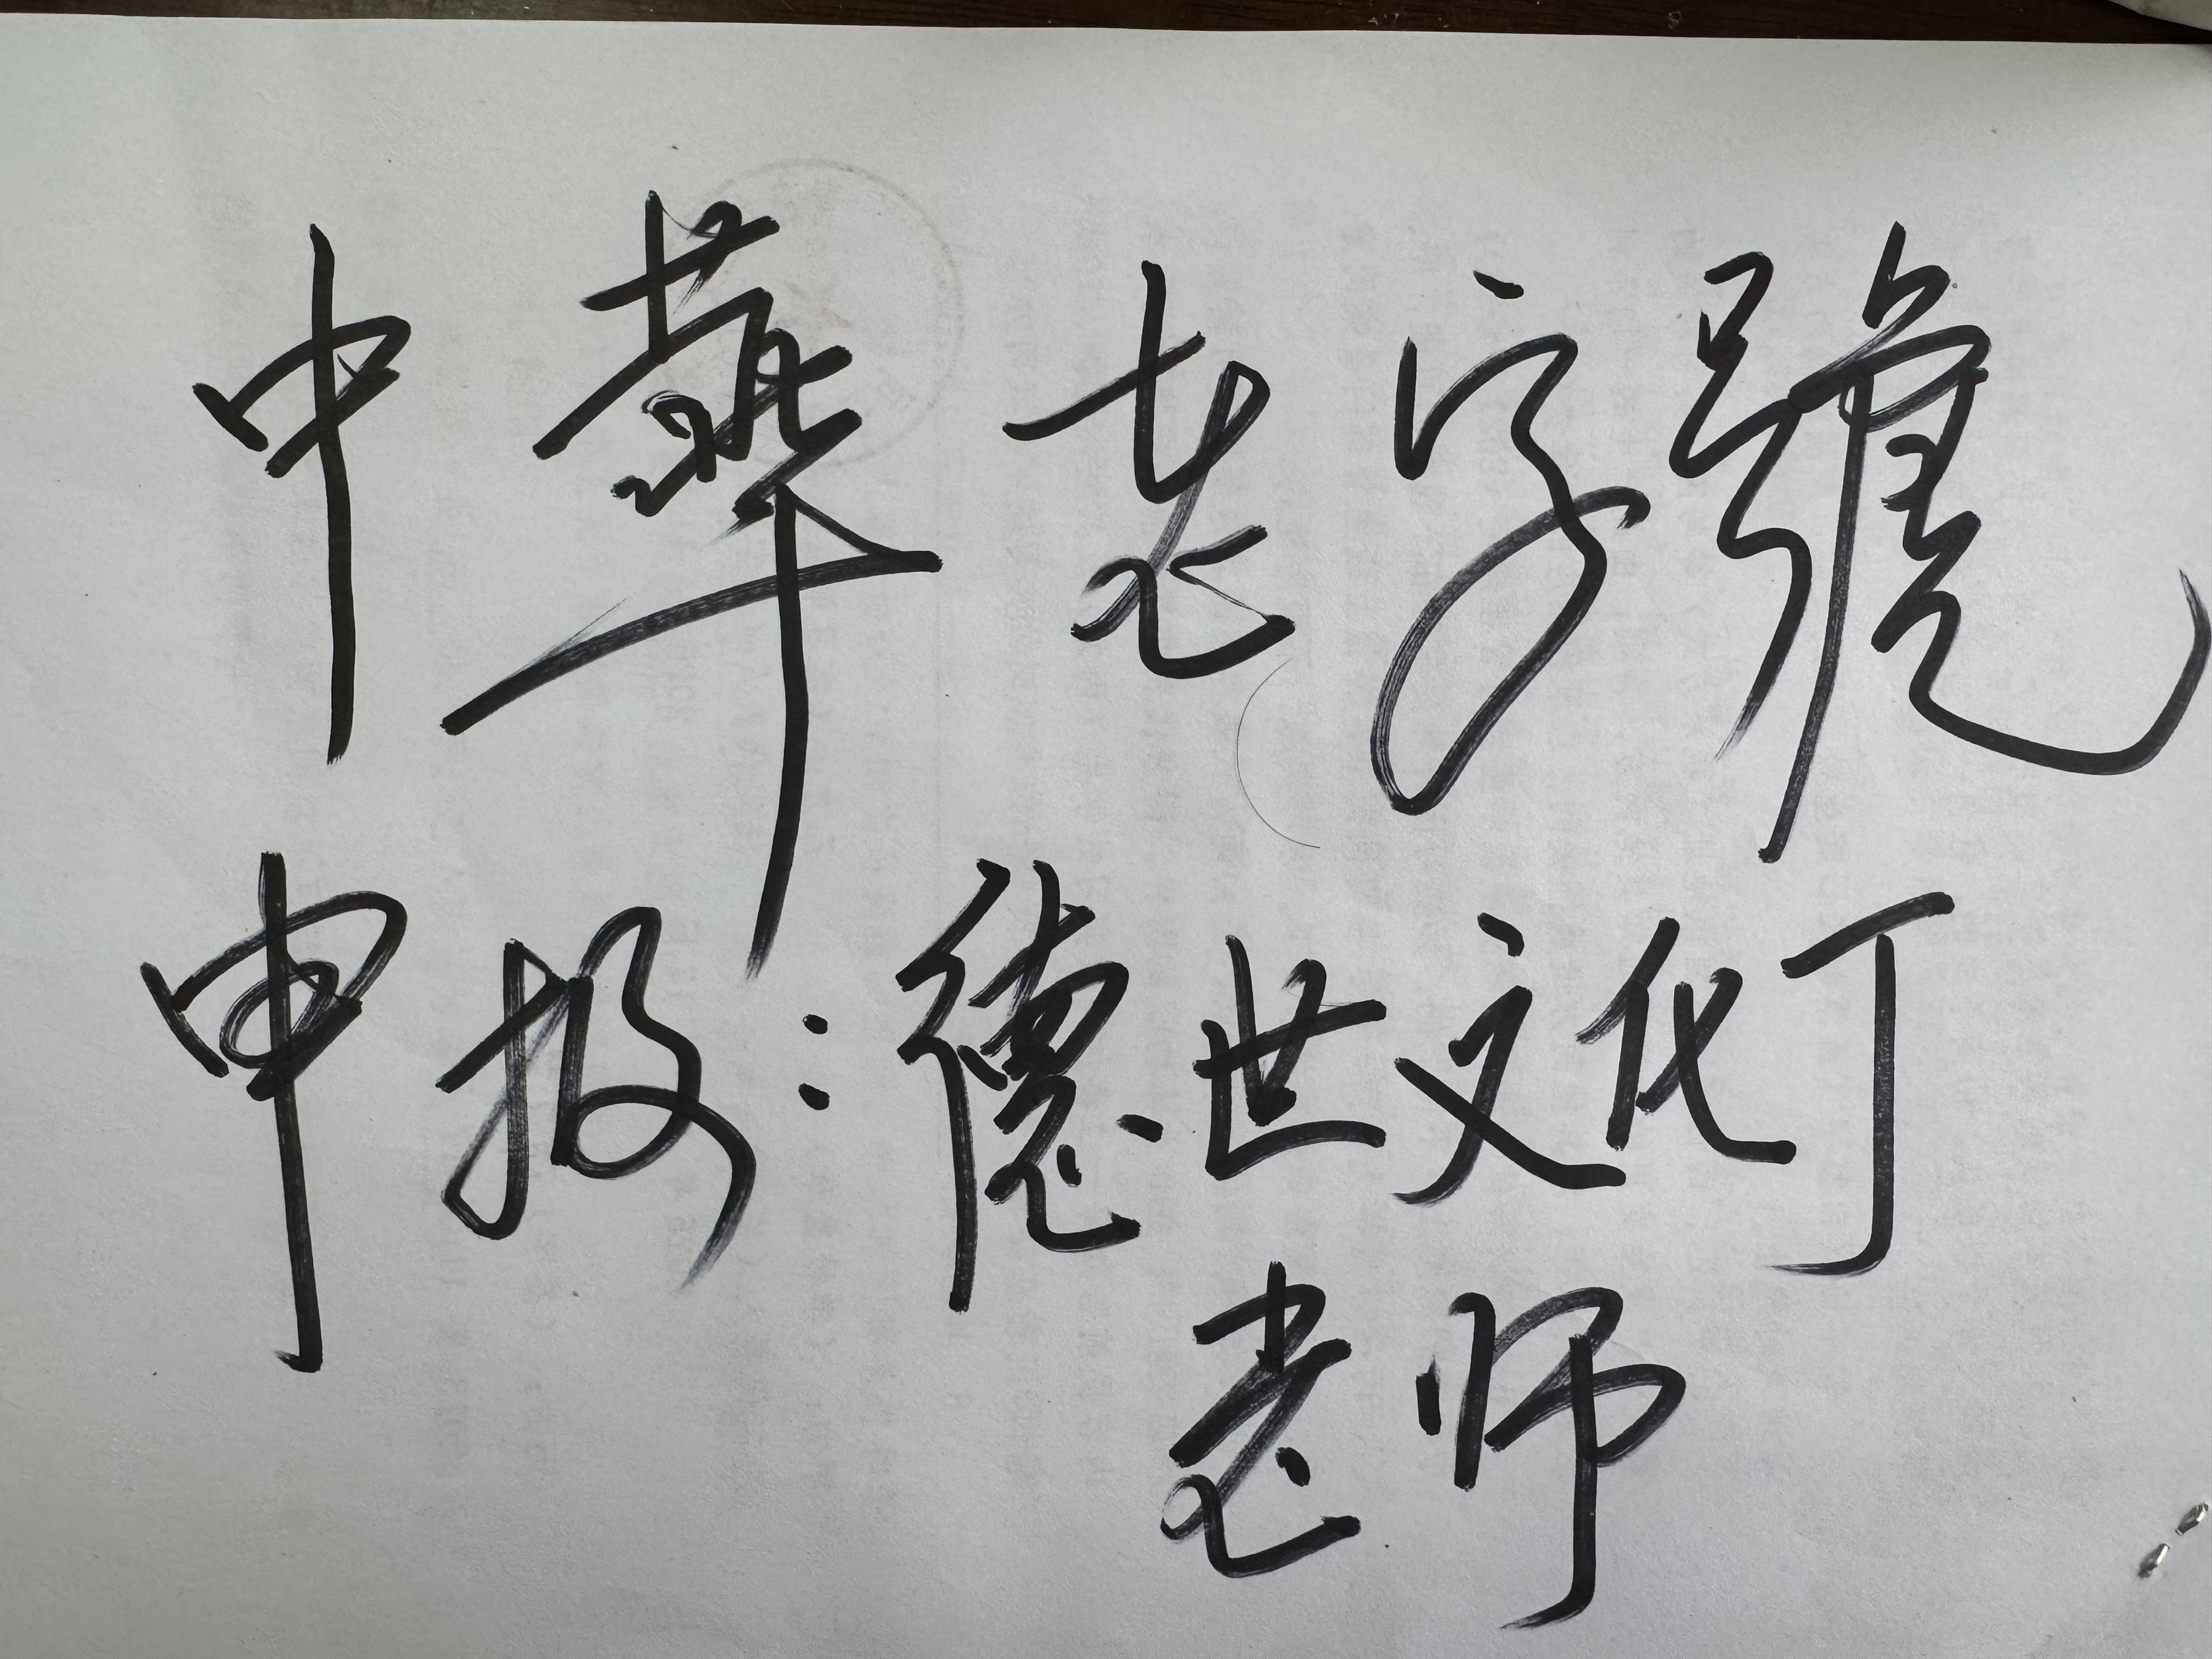 中華老字號
申报：德世文化丁
老师